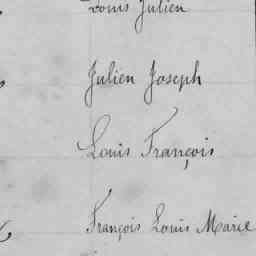 Louis Julien
Julien Joseph
Louis François
François Louis Marie